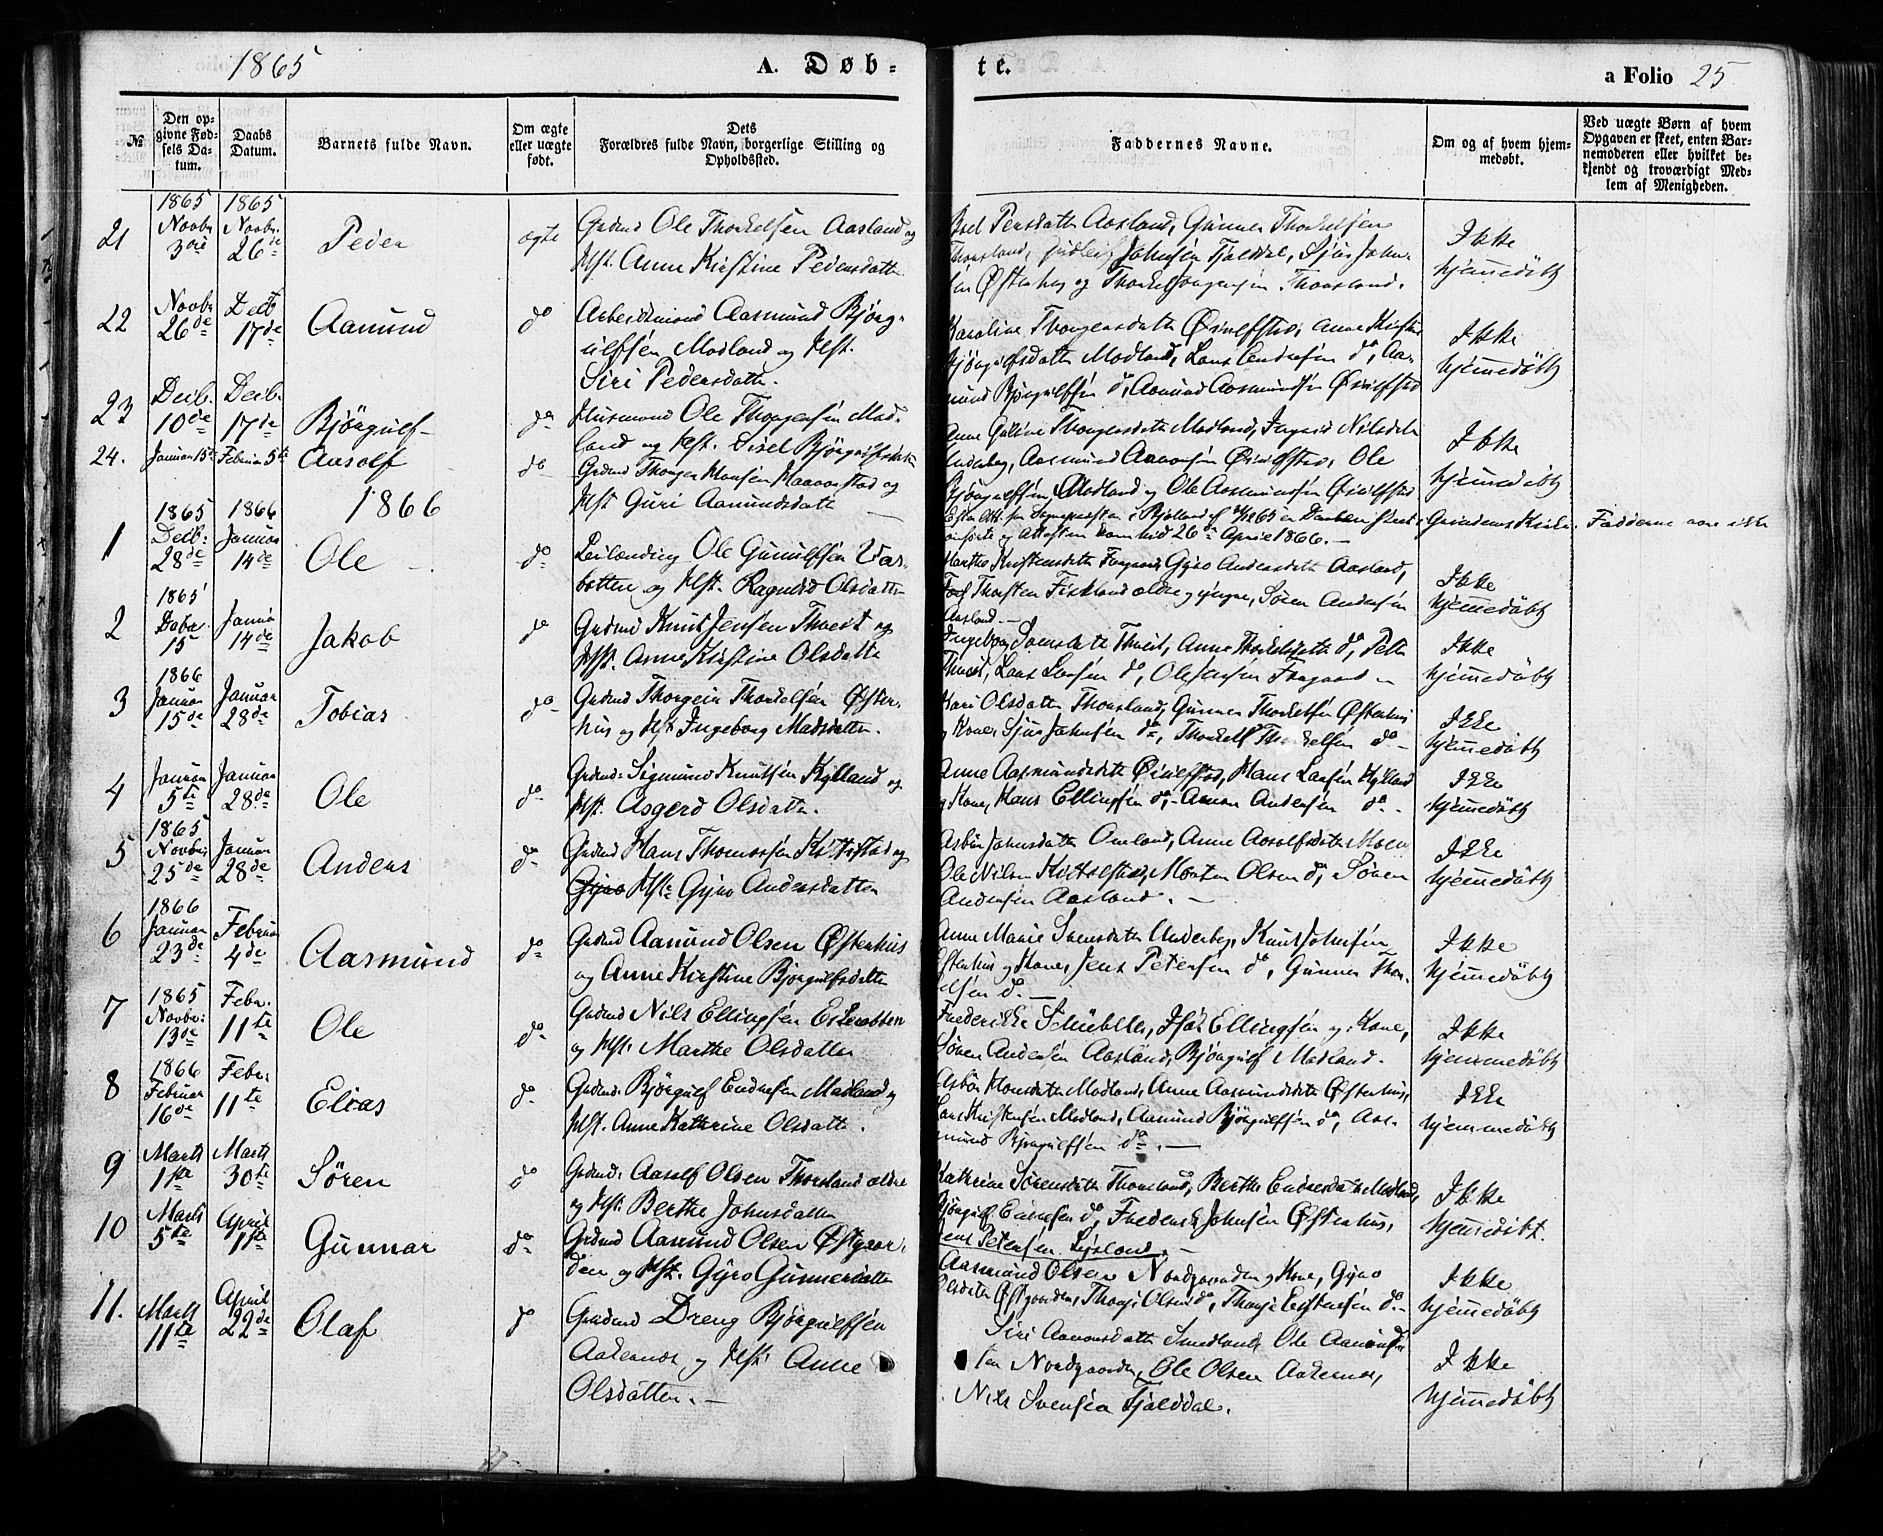 1865 A. Døb-
te. a Folio 25
№
Den op-
givne Fød-
sels Da-
tum.
Daabs
Datum.
Barnets fulde Navn.
Om ægte
eller uægte
født.
Dets
Forældres fulde Navn, borgerlige Stilling og
Opholdssted.
Faddernes Navne.
Om og af hvem hjem-
medøbt.
Ved uægte Børn af hvem
Opgaven er skeet, enten Bar-
nemoderen eller hvilket be-
kjendt og troværdigt Med-
lem af Menigheden.
21
1865
Novbr
3die
1865
Novbr.
26de
Peder
ægte
Grdmd Ole Thorkelsen Aasland og
Hst. Anne Kirstine Pedersdatter
Aasland, Gunner Thorkelsen
Thorsland, Johnsen Fjelddal, Sjur John-
sen Østerhus og Thorkel Thorsland.
Ikke
hjemmedøbt
22
Novbr
26de
Decb
17de
Aamund
do
Arbeidsmand Aasmund Bjørg-
ulfsen Modland og Hst.
Siri Pedersdatter.
Karoline Thorgersdatter Øvulfstad, Anne Kirstine
Bjørgulfsdatter Modland, Lars Endresen do, Aa-
mund Bjørgulfsen do, Aamund Aasmundsen Øvulfstad
Ikke
hjemmedøbt
23
Decb.
10de
Decb.
17de
Bjørgulf
do
Husmand Ole Thorgersen Mod-
land og Hst. Sisel Bjørgulfsdatter
Anne Guline Thorgersdatter Modland, Ingerid Nilsdatter
Underberg, Aasmund Aanonsen Øvulfstad, Ole
Bjørgulfsen Modland og Ole Aasmundsen Øvulfstad
Ikke
hjemmedøbt
24.
Januar 15te
Februar 5te
Aasolf
do
Grdmd Thorger Hansen Haaverstad og
Hst Guri Aamundsdatter
i Bjelland af er Daaben skeet i Grindens Kirke. Fadderne vare ikke
anførte og Attesten kom hid 26de April 1866.
1866
1
1865
Decb:
28de
1866
Januar
14de
Ole
do
Leilænding Ole Gunulfsen Var-
botten og Hst. Ragnild Olsdatter
Marthe Kristensdatter Foregaard, Gyro Andersdatter Aasland,
Thorsten Fiskland ældre og yngre, Søren Andersen
Aasland.
Ikke
hjemmedøbt
2
1865
Decbr
15
Januar
14de
Jakob
do
Grdmd Knut Jensen Thveit og
Hst. Anne Kirstine Olsdatter
Ingeborg Svensdatter Thveit, Anne Thorkelsdatter do, Petter
Thveit, Lars Larsen do, Ole Jensen Foregaard
Ikke
hjemmedøbt
3
1866
Januar
15de
Januar
28de
Tobias
do
Grdmd Thorgeir Thorkelsen Øster-
hus og Hst Ingeborg Madsdatter.
Kari Olsdatter Thorsland, Gunner Thorkelsen Østerhus
og Kone, Sjur Johnsen do, Thorkel Thorkelsen do
Ikke
hjemmedøbt
4
Januar
5te
Januar
28de
Ole
do
Grdmd. Sigmund Knutsen Kylland og
Hst. Asgerd Olsdatter.
Anne Aasmundsdatter Øvulfstad, Hans Larsen Kylland
og Kone, Hans Ellingsen do, Aanon Andersen do
Ikke
hjemmedøbt
5
1865
Novbr:
25de
Januar
28de
Anders
do
Grdmd Hans Thomassen Ketilstad og
Gyro Hst. Gyro Andersdatter
Asbør Johnsdatter Omland, Anne Aasolfsdatter Moen
Ole Nilsen Ketilstad, Morten Olsen do, Søren
Andersen Aasland.
Ikke
hjemmedøbt
6
1866
Januar
23de
Februar
4de
Aasmund
do
Grdmd Aamund Olsen Østerhus
og Anne Kirstine Bjørgulfsdatter
Anne Marie Svensdatter Underberg, Knut Johnsen
Østerhus og Kone, Jens Petersen do, Gunner Thor-
elsen do.
Ikke
hjemmedøbt
7
1865
Novbr:
13de
Febr.
11te
Ole
do
Grdmd Nils Ellingsen Eskrobotten
og Hst. Marthe Olsdatter
Frederikke Schübeller, Isak Ellingsen og Kone,
Søren Andersen Aasland, Bjørgulf Modland.
Ikke
hjemmedøbt
8
1866
Februar
16de
Febr.
11te
Elias
do
Grdmd. Bjørgulf Endresen Modland og
Hst. Anne Kathrine Olsdatter.
Asbør Hansdatter Modland, Anne Aasmundsdatter Østerhus,
Lars Kristensen Modland, Aamund Bjørgulfsen do, Aas-
mund Bjørgulfsen do.
Ikke
hjemmedøbt
9
Marts
1ste
Marts
30te
Søren
do
Grdmd. Aasolf Olsen Thorsland ældre
og Hst. Berthe Johnsdatter
Kathrine Sørensdatter Thorsland, Berthe Endresdatter Modland,
Bjørgulf Endresen do, Frederik Johnsen Østerhus,
Jens Petersen Ligland.
Ikke
hjemmedøbt.
10
Marts
5te
April
1ste
Gunnar
do
Grdmd Aamund Olsen Østgaar-
den og Hst. Gyro Gunnersdatter
Aasmund Olsen Nordgaarden og Kone, Gyro
Olsdatter Østgaarden, Thorje Olsen do, Thorje do
Ikke
hjemmedøbt
11.
Marts
11te
April
22de
Olaf
do
Grdmd Dreng Bjørgulfsen
Aakernes og Hst. Anne
Olsdatter.
Siri Aanonsdatter Smedland, Ole Aamundsen
Nordgaarden, Ole Olsen Aakernes,
Nils Svensen Fjelddal.
Ikke
hjemmedøbt